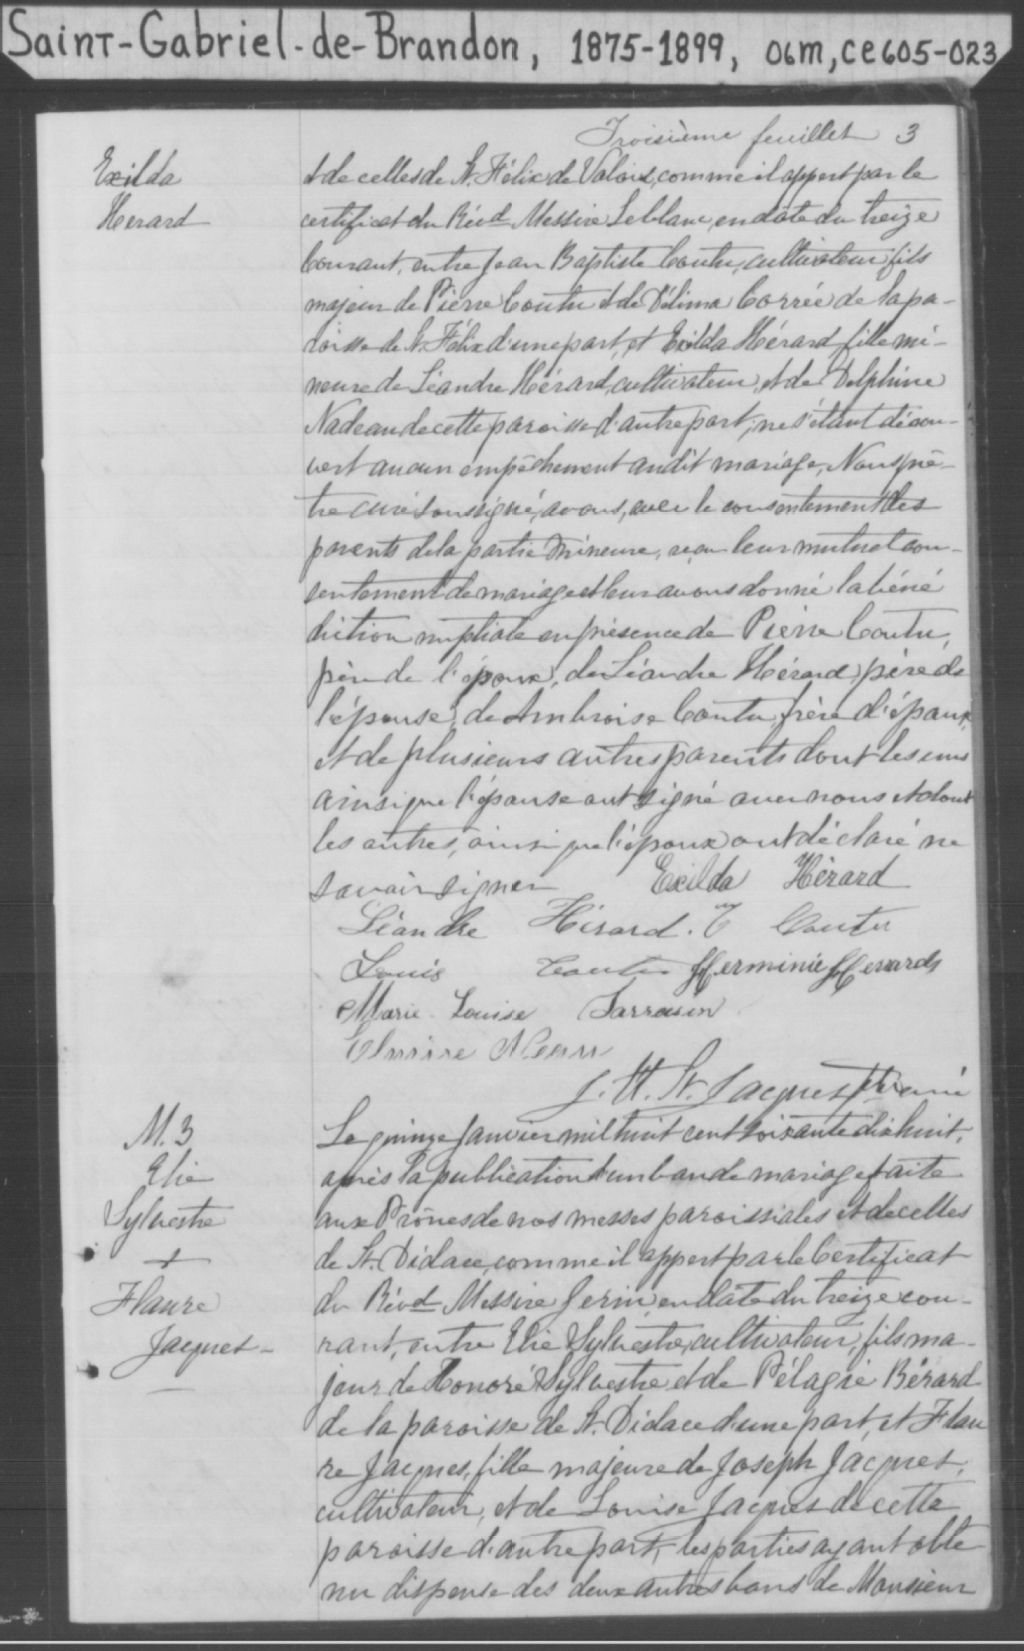 Saint-Gabriel-de-Brandon, 1875-1899, 06m, ce605-023
Troisième feuillet 3
Exilda
Herard
et de celles de St. Félix de Valois, comme il appert par le
certificat du Révd Messire Leblanc, en date du treize
Courant, entre Jean Baptiste Coutu, cultivateur, fils
majeur de Pierre Coutu et de Délima Corrée de la pa-
roisse de St. Félix d'une part, et Exilda Hérard fille mi-
neure de Léandre Hérard, cultivateur, et de Delphine
Nadeau de cette paroisse d'autre part; ne s'étant décou-
vert aucun empêchement audit mariage, Nous prê-
tre curé soussigné, avons, avec le consentement des
parents de la partie mineure, reçu leur mutuel con-
sentement de mariage et leur avons donné la béné
diction nuptiale en présence de Pierre Coutu,
père de l'époux, de Léandre Hérard, père de
l'épouse, de Ambroise Coutu, frère d'époux,
et de plusieurs autres parents dont les uns
ainsi que l'épouse ont signé avec nous et dont
les autres, ainsi que l'époux ont déclaré ne
savoir signer Exilda Hérard
Léandre Hérard. Coutu
Louis Coutu Herminie Herard
Marie Louise Sarrasin
J. H. St. Jacques Ptre curé
M. 3
Elie
Sylvestre
+
Flaure
Jacques
Le quinze Janvier mil huit cent soixante dix huit,
après la publication d'un ban de mariage faite
aux Prônes de nos messes paroissiales et de celles
de St. Didace, comme il appert par le Certificat
du Révd Messire Jerin, en date du treize cou-
rant, entre Elie Sylvestre, cultivateur, fils ma-
jeur de Honoré Sylvestre et de Pélagie Bérard
de la paroisse de St. Didace d'une part, et Flau
re Jacques, fille majeure de Joseph Jacques,
cultivateur, et de Louise Jacques de cette
paroisse d'autre part, les parties ayant obte
nu dispense des deux autres bans de Monsieur